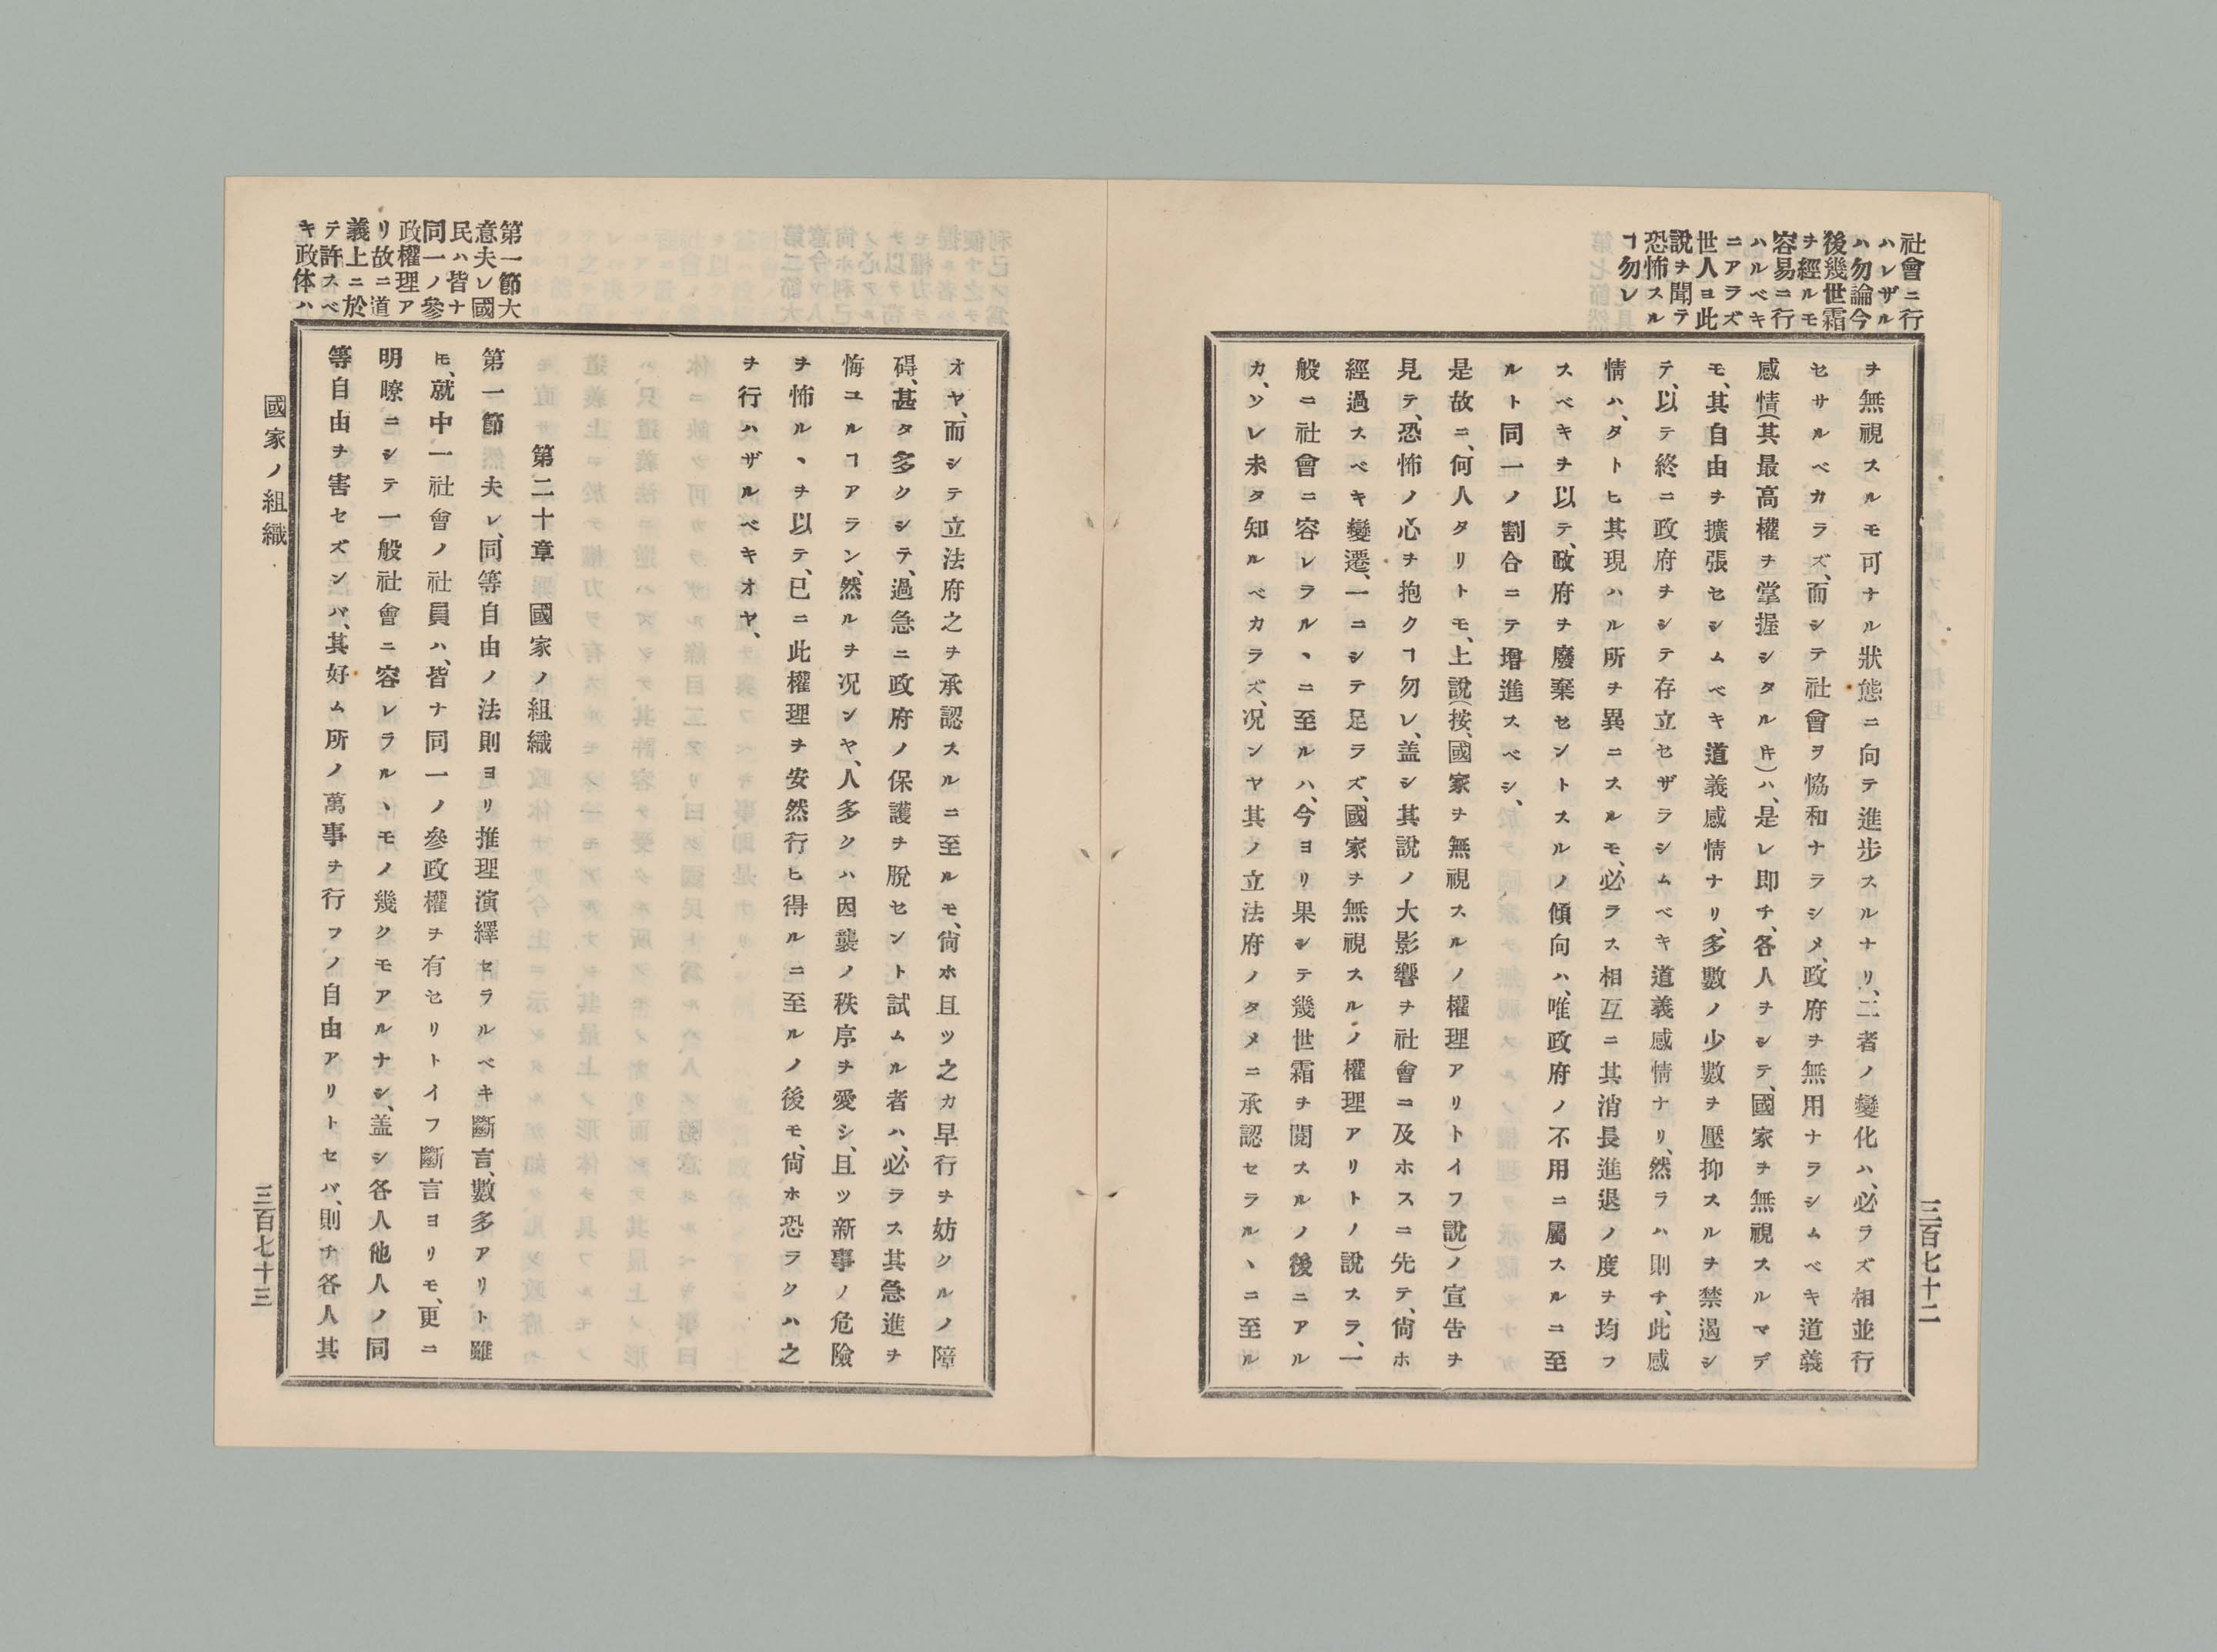 社會ニ行
ハレザル
ハ勿論今
後幾世霜
ヲ經ルモ
容易ニ行
ハルベキ
ニアラズ
世人ヨ此
說ヲ聞テ
恐怖スル
ヿ勿レ
ヲ無視スルモ可ナル狀態ニ向テ進步スルナリ、二者ノ變化ハ、必ラズ相並行
セサルベカラズ、而シテ社會ヲ恊和ナラシメ、政府ヲ無用ナラシムベキ道義
感情(其最高權ヲ掌握シタルヰ)ハ、是レ即チ、各人ヲシテ、國家ヲ無視スルマデ
モ、其自由ヲ擴張セシムベキ道義感情ナリ、多數ノ少數ヲ壓抑スルヲ禁遏シ
テ、以テ終ニ政府ヲシテ存立セザラシムベキ道義感情ナリ、然ラハ則チ、此感
情ハ、タトヒ其現ハル所ヲ異ニスルモ、必ラス相互ニ其消長進退ノ度ヲ均フ
スベキヲ以テ、政府ヲ廢棄セントスルノ傾向ハ、唯政府ノ不用ニ屬スルニ至
ルト同一ノ割合ニテ增進スベシ、
是故ニ、何人タリトモ、上說(按、國家ヲ無視スルノ權理アリトイフ說)ノ宣告ヲ
見テ、恐怖ノ心ヲ抱クヿ勿レ、盖シ其說ノ大影響ヲ社會ニ及ホスニ先テ、尙ホ
經過スベキ變遷、一ニシテ足ラズ、國家ヲ無視スルノ權理アリトノ說スラ、一
般ニ社會ニ容レラルヽニ至ルハ、今ヨリ果シテ幾世霜ヲ閱スルノ後ニアル
カ、ソレ未タ知ルベカラズ、况ンヤ其ノ立法府ノタメニ承認セラルヽニ至ル
三百七十二
第一節大
意夫レ國
民ハ皆ナ
同一ノ參
政權理ア
リ故ニ道
義上ニ於
テ許スベ
キ政体ハ
オヤ、而シテ立法府之ヲ承認スルニ至ルモ、尙ホ且ツ之カ早行ヲ妨クルノ障
碍、甚タ多クシテ、過急ニ政府ノ保護ヲ脫セント試ムル者ハ、必ラス其急進ヲ
悔ユルヿアラン、然ルヲ况ンヤ、人多クハ因襲ノ秩序ヲ愛シ、且ツ新事ノ危險
ヲ怖ルヽヲ以テ、已ニ此權理ヲ安然行ヒ得ルニ至ルノ後モ、尙ホ恐ラクハ之
ヲ行ハザルベキオヤ、
第二十章　國家ノ組織
第一節　夫レ、同等自由ノ法則ヨリ推理演繹セラルベキ斷言、數多アリト雖
𪜈、就中一社會ノ社員ハ、皆ナ同一ノ參政權ヲ有セリトイフ斷言ヨリモ、更ニ
明瞭ニシテ一般社會ニ容レラルヽモノ幾クモアルナシ、盖シ各人他人ノ同
等自由ヲ害セズンバ、其好ム所ノ萬事ヲ行フノ自由アリトセバ、則チ各人其
國家ノ組織
三百七十三